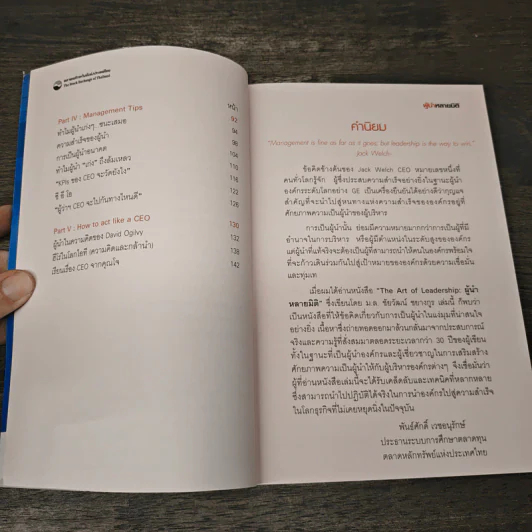 ตลาดหลักทรัพย์แห่งประเทศไทย
The Stock Exchange of Thailand
หน้า
Part IV : Management Tips 92
ทำไมผู้นำเก่งๆ...ชนะเสมอ 94
ความสำเร็จของผู้นำ 98
การเป็นผู้นำอนาคต 104
ทำไมผู้นำ "เก่ง" ถึงล้มเหลว 110
"KPIs ของ CEO จะวัดยังไง" 116
ซี อี โอ 122
"ผู้ว่าฯ CEO จะไปกันทางไหนดี" 126
Part V : How to act like a CEO 130
ผู้นำในความคิดของ David Ogilvy 132
ฮีโร่ในโลกไอที (ความคิดและกล้านำ) 138
เรียนเรื่อง CEO จากคุณโจ 142
ผู้นำหลายมิติ
คำนิยม
"Management is fine as far as it goes, but leadership is the way to win."
Jack Welch
ข้อคิดข้างต้นของ Jack Welch CEO หมายเลขหนึ่งที่
คนทั่วโลกรู้จัก ผู้ซึ่งประสบความสำเร็จอย่างยิ่งในฐานะผู้นำ
องค์กรระดับโลกอย่าง GE เป็นเครื่องยืนยันได้อย่างดีว่ากุญแจ
สำคัญที่จะนำไปสู่หนทางแห่งความสำเร็จขององค์กรอยู่ที่
ศักยภาพความเป็นผู้นำของผู้บริหาร
การเป็นผู้นำนั้น ย่อมมีความหมายมากกว่าการเป็นผู้ที่มี
อำนาจในการบริหาร หรือผู้มีตำแหน่งในระดับสูงขององค์กร
แต่ผู้นำที่แท้จริงจะต้องเป็นผู้ที่สามารถนำให้คนในองค์กรพร้อมใจ
ที่จะก้าวเดินร่วมกันไปสู่เป้าหมายขององค์กรด้วยความเชื่อมั่น
และทุ่มเท
เมื่อผมได้อ่านหนังสือ "The Art of Leadership: ผู้นำ
หลายมิติ" ซึ่งเขียนโดย ม.ล. ชัยวัฒน์ ชยางกูร เล่มนี้ ก็พบว่า
เป็นหนังสือที่ให้ข้อคิดเกี่ยวกับการเป็นผู้นำในแง่มุมที่น่าสนใจ
อย่างยิ่ง เนื้อหาซึ่งถ่ายทอดออกมาล้วนกลั่นมาจากประสบการณ์
จริงและความรู้ที่สั่งสมมาตลอดระยะเวลากว่า 30 ปีของผู้เขียน
ทั้งในฐานะที่เป็นผู้นำองค์กรและผู้เชี่ยวชาญในการเสริมสร้าง
ศักยภาพความเป็นผู้นำให้กับผู้บริหารองค์กรต่างๆ จึงเชื่อมั่นว่า
ผู้ที่อ่านหนังสือเล่มนี้จะได้รับเคล็ดลับและเทคนิคที่หลากหลาย
ซึ่งสามารถนำไปปฏิบัติได้จริงในการนำองค์กรไปสู่ความสำเร็จ
ในโลกธุรกิจที่ไม่เคยหยุดนิ่งในปัจจุบัน
พันธ์ศักดิ์ เวชอนุรักษ์
ประธานระบบการศึกษาตลาดทุน
ตลาดหลักทรัพย์แห่งประเทศไทย